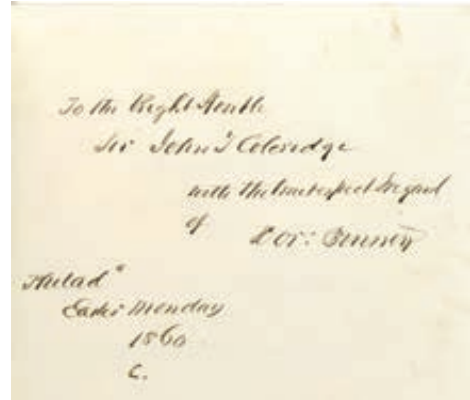 To the Right Honble
Sir John T Coleridge
with the true respect & regard
of
Hor: Binney
Philada
Easter Monday
1860
C.